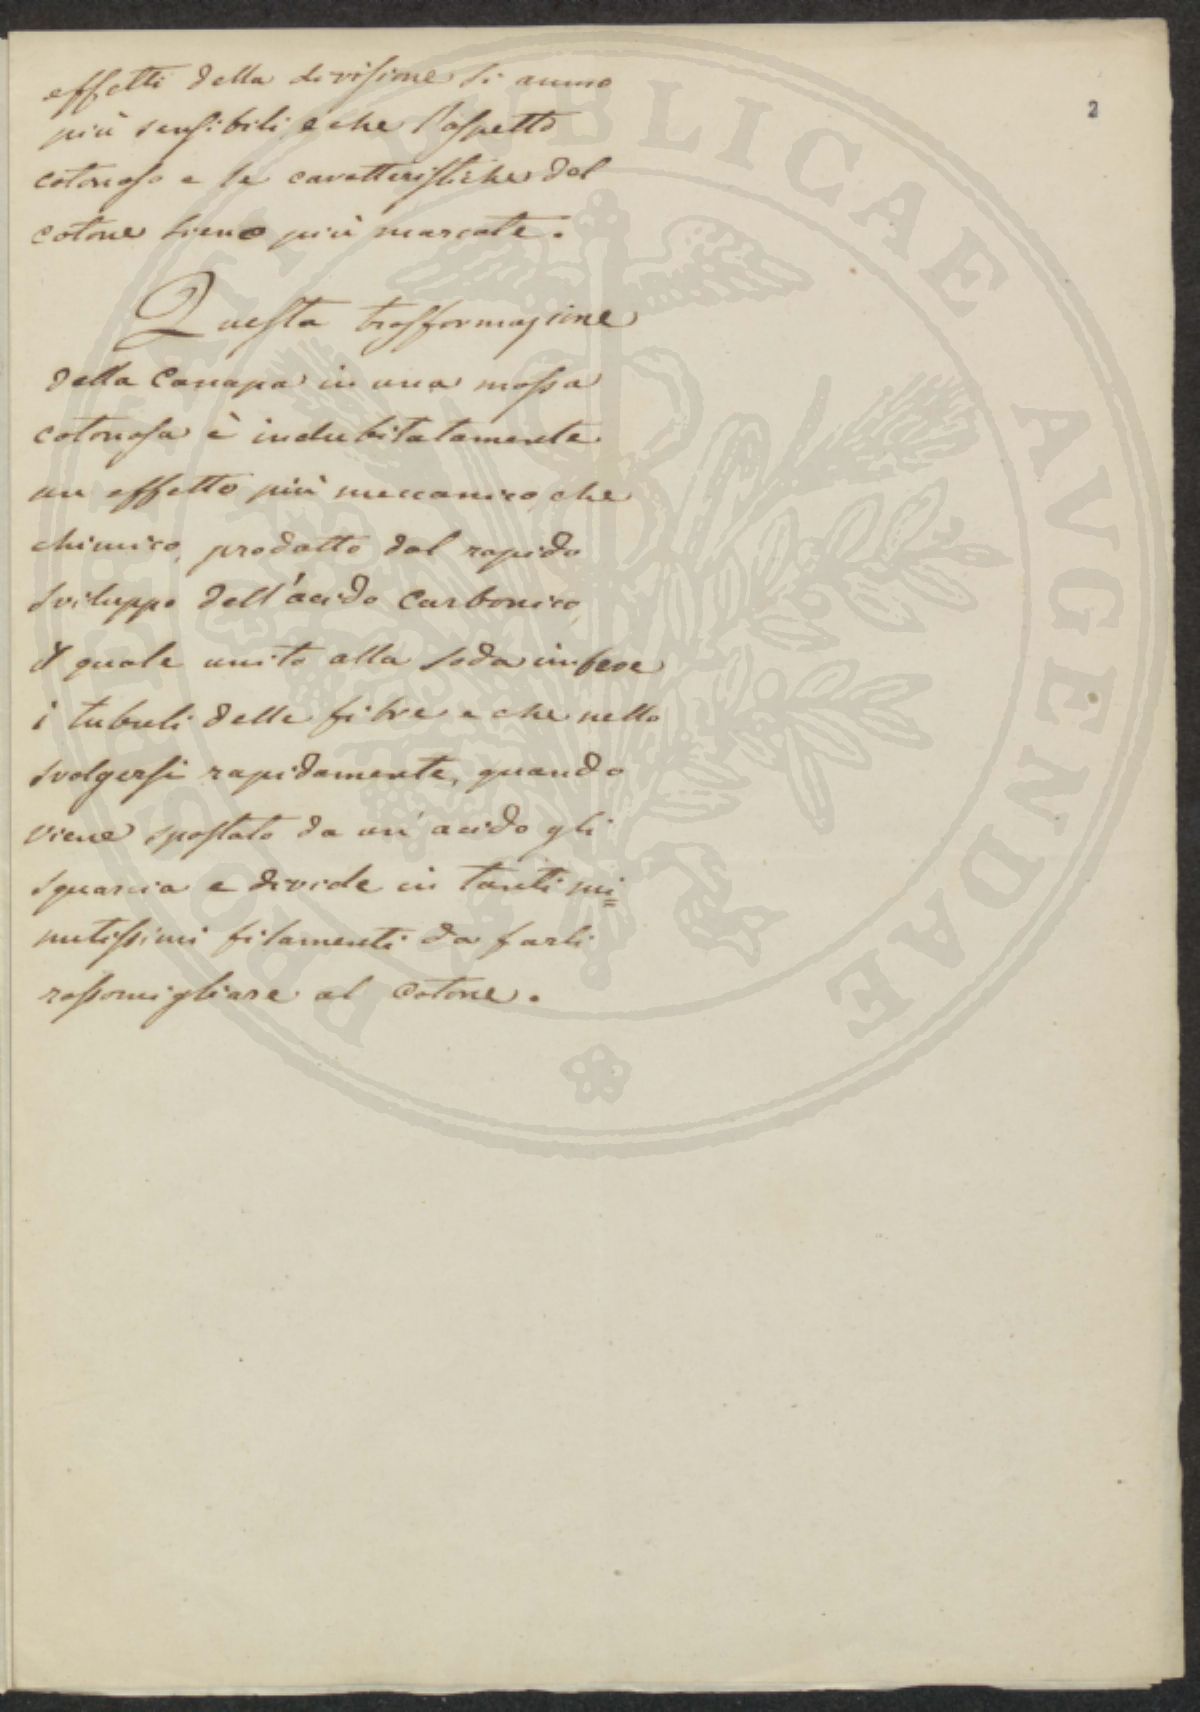 2
effetti della divisione si anno
più sensibili e che l'aspetto
cotonoso e le caratteristiche del
cotone sieno più marcate.
Questa trasformazione
della Canapa in una massa
cotonosa è indubitatamente
un effetto più meccanico, che
chimico, prodotto dal rapido
sviluppo dell'acido Carbonico,
il quale unito alla soda
i tubuli delle fibre e che nello
svolgersi rapidamente, quando
viene spostato da un'acido gli
squarcia e divide in tanti mi=
nutissimi filamenti da farli
rassomigliare al Cotone.
PUBLICAE AUGENDAE